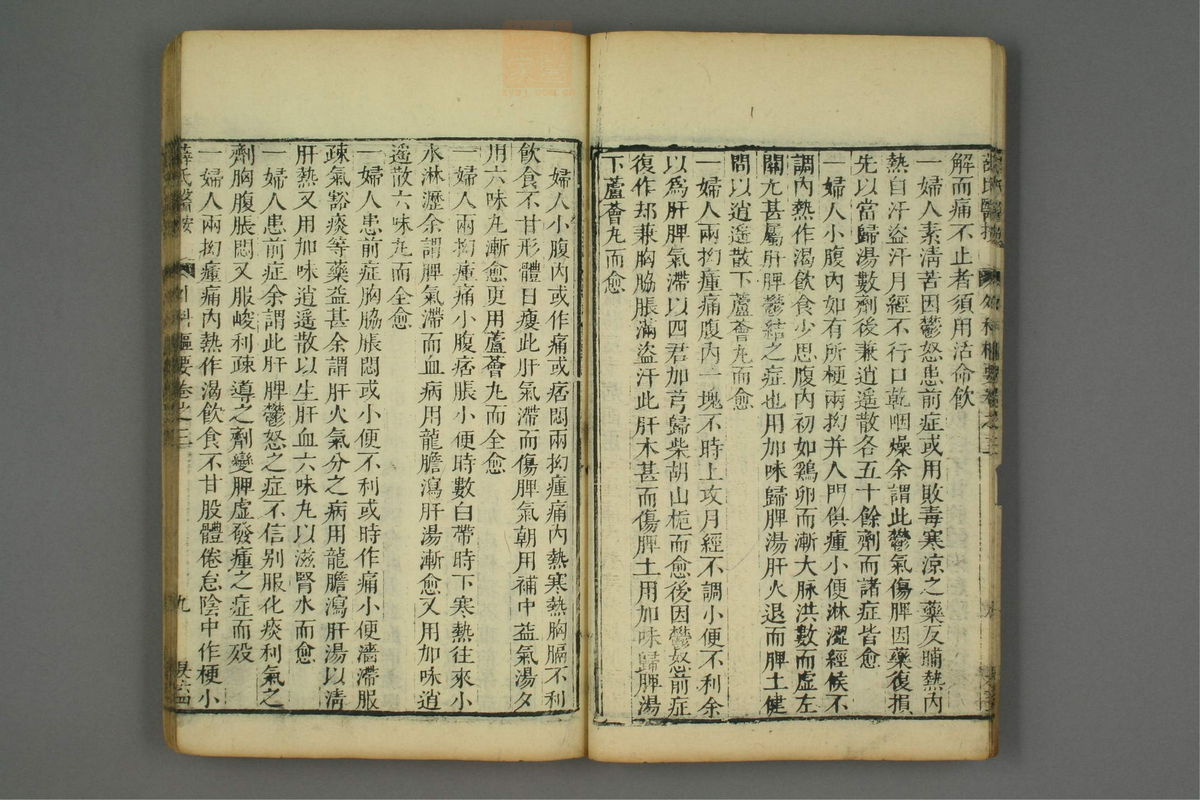 解而痛不止者須用活命飲
一婦人素清苦因鬱怒患前症或用敗毒寒凉之藥反晡熱內
熱自汗盜汗月經不行口乾咽燥余謂此鬱氣傷脾因藥復損
先以當歸湯數劑後兼逍遙散各五十餘劑而諸症皆愈
一婦人小腹內如有所梗兩拗并入門俱瘇小便淋澀經候不
調內熱作渴飲食少思腹內初如鷄卵而漸大脉洪數而虛左
關尤甚屬肝脾鬱結之症也用加味歸脾湯肝火退而脾土健
間以逍遙散下蘆薈丸而愈
一婦人兩拗瘇痛腹內一塊不時上攻月經不調小便不利余
以爲肝脾氣滯以四君加芎歸柴胡山梔而愈後因鬱怒前症
復作却兼胸脇脹滿盜汗此肝木甚而傷脾土用加味歸脾湯
下蘆薈丸而愈
一婦人小腹內或作痛或痞悶兩拗瘇痛內熱寒熱胸膈不利
飲食不甘形體日瘦此肝氣滯而傷脾氣朝用補中益氣湯夕
用六味丸漸愈更用蘆薈丸而全愈
一婦人兩拗瘇痛小腹痞脹小便時數白帶時下寒熱往來小
水淋瀝余謂脾氣滯而血病用龍膽瀉肝湯漸愈又用加味逍
遙散六味丸而全愈
一婦人患前症胸脇脹悶或小便不利或時作痛小便濇滯服
疎氣豁痰等藥益甚余謂肝火氣分之病用龍膽瀉肝湯以清
肝熱又用加味逍遙散以生肝血六味丸以滋腎水而愈
一婦人患前症余謂此肝脾鬱怒之症不信别服化痰利氣之
劑胸腹脹悶又服峻利疎導之劑變脾虛發瘇之症而殁
一婦人兩拗瘇痛內熱作渴飲食不甘股體倦怠陰中作梗小
薛氏醫按 外科樞要卷之三 九